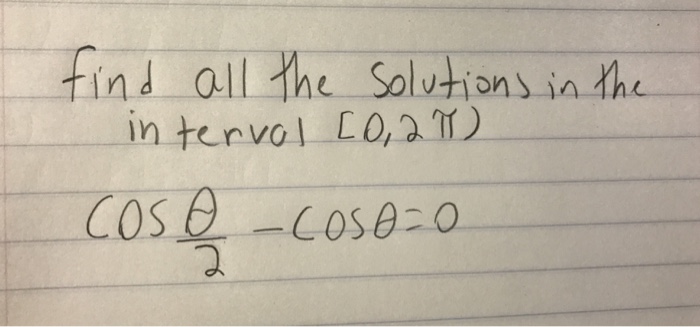 find all the solutions in the
interval [0,2π)
cos θ/2 - cosθ=0